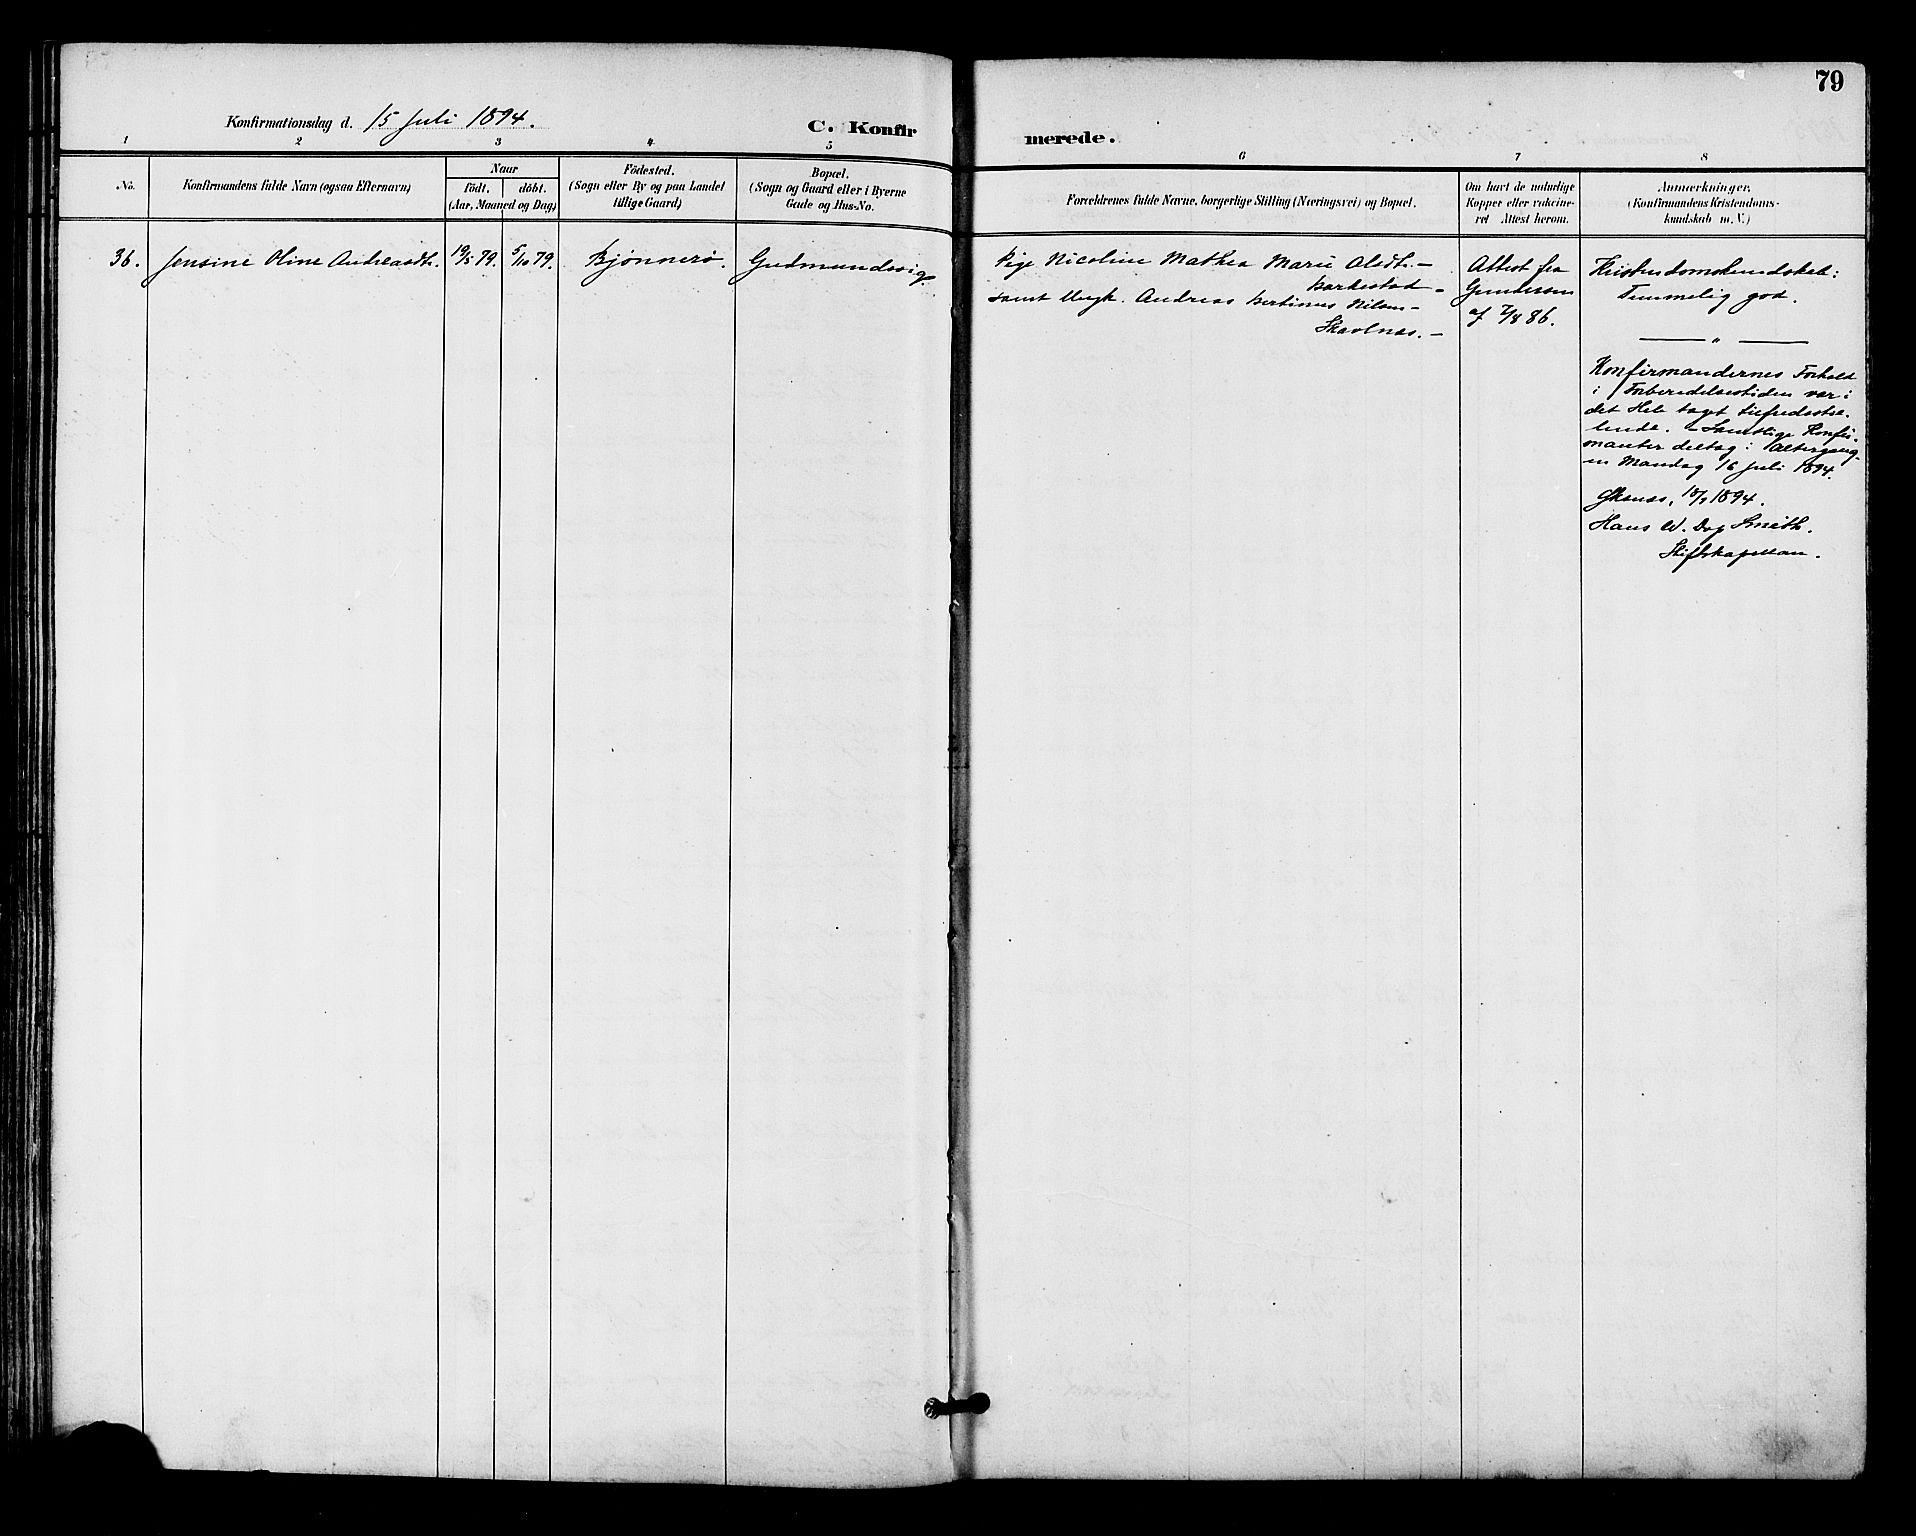 79
Konfirmationsdag d. 15 Juli 1894.
C. Konfir
merede.
1 2 3 4 5
6 7 8
No.
Konfirmandens fulde Navn (ogsaa Efternavn)
Naar
födt. döbt.
(Aar, Maaned og Dag)
Födested.
(Sogn eller By og paa Landet
tillige Gaard)
Bopæl.
(Sogn og Gaard eller i Byerne
Gade og Hus-No.
Forældrenes fulde Navne, borgerlige Stilling (Næringsvei) og Bopæl.
Om havt de naturlige
Kopper eller vakcine-
ret Attest herom.
Anmærkninger,
(Konfirmandens Kristendoms-
kundskab m. V.)
36. Jensine Oline Andreasdt. 19/5 79. 5/10 79. Bjønnerø. Gudmundsvig
Pige Nicoline Mathea Marie Olsdt. –
Barkestad –
samt Ungk. Andreas Bertinus Nilsen –
Skavlnes. –
Attest fra
Gundersen
af 7/8 86.
Kristendomskundskab:
Temmelig god.
— " —
Konfirmandernes Forhold
i Forberedelsestiden var i
det Hele taget tilfredsstil-
lende. – Samtlige Konfir-
manter deltog i Altergang-
en Mandag 16 Juli 1894.
18/7 1894.
Hans W. Dop Smith.
Stiftskapellan.